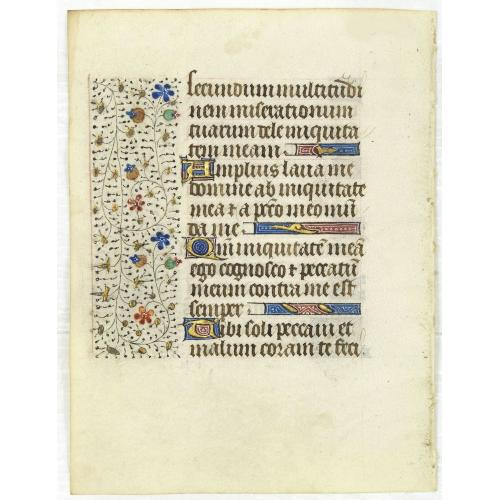 secundum multitudi
nem miserationum
tuarum dele iniquita
tem meam
Amplius laua me
domine ab iniquitate
mea et a pccō meo mū
da me
Qm iniquitatē meā
ego cognosco et peccatū
meum contra me est
semper
Tibi soli peccaui et
malum coram te feci